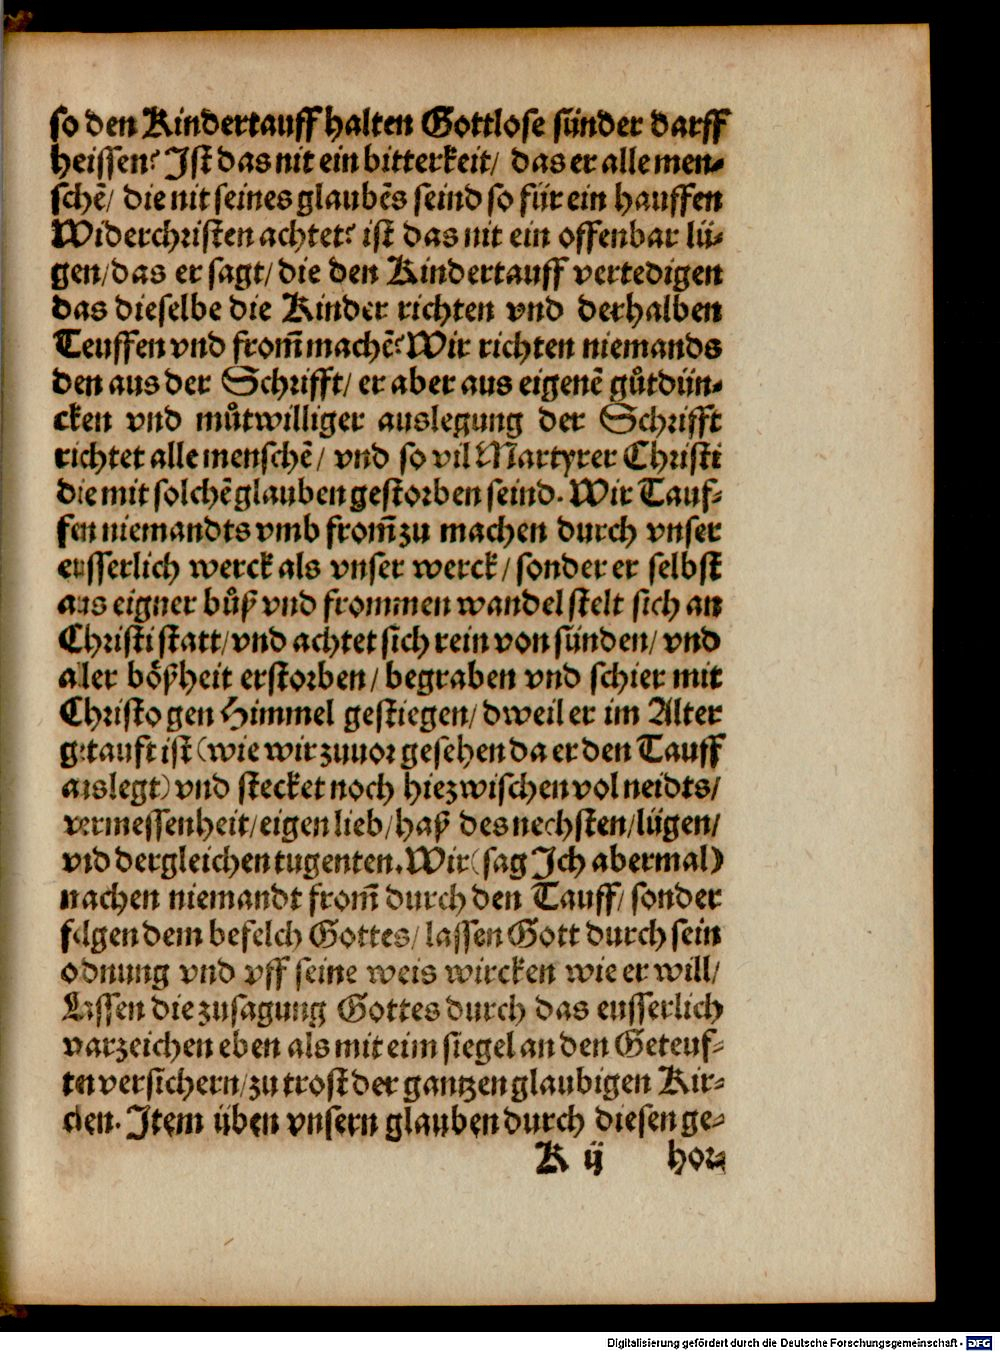 so den Kindertauff halten Gottlose sünder darff
heissen? Ist das nit ein bitterkeit/ das er alle men-
schē/ die nit seines glaubēs seind so für ein hauffen
Widerchristen achtet? ist das nit ein offenbar lü-
gen/das er sagt/die den Kindertauff vertedigen
das dieselbe die Kinder richten vnd derhalben
Teuffen vnd from̄ machē? Wir richten niemands
den aus der Schrifft/ er aber aus eigenē gůtdün-
cken vnd můtwilliger auslegung der Schrifft
richtet alle menschē/ vnd so vil Martyrer Christi
die mit solchē glauben gestorben seind. Wir Tauf-
fen niemandts vmb from̄ zu machen durch vnser
eusserlich werck als vnser werck/ sonder er selbst
aus eigner bůß vnd frommen wandel stelt sich an
Christi statt/vnd achtet sich rein von sünden/ vnd
aller bößheit erstorben/ begraben vnd schier mit
Christo gen Himmel gestiegen/ dweil er im Alter
getauft ist (wie wir zuuor gesehen da er den Tauff
auslegt) vnd stecket noch hiezwischen vol neidts/
vermessenheit/eigen lieb/haß des nechsten/lügen/
vnd dergleichen tugenten. Wir (sag Ich abermal)
machen niemandt from̄ durch den Tauff/ sonder
folgen dem befelch Gottes/ lassen Gott durch sein
odnung vnd vff seine weis wircken wie er will/
Lassen die zusagung Gottes durch das eusserlich
warzeichen eben als mit eim siegel an den Geteuf-
ten versichern/zu trost der gantzen glaubigen Kir-
chen. Item üben vnsern glauben durch diesen ge-
K ij hor-
Digitalisierung gefördert durch die Deutsche Forschungsgemeinschaft - DFG